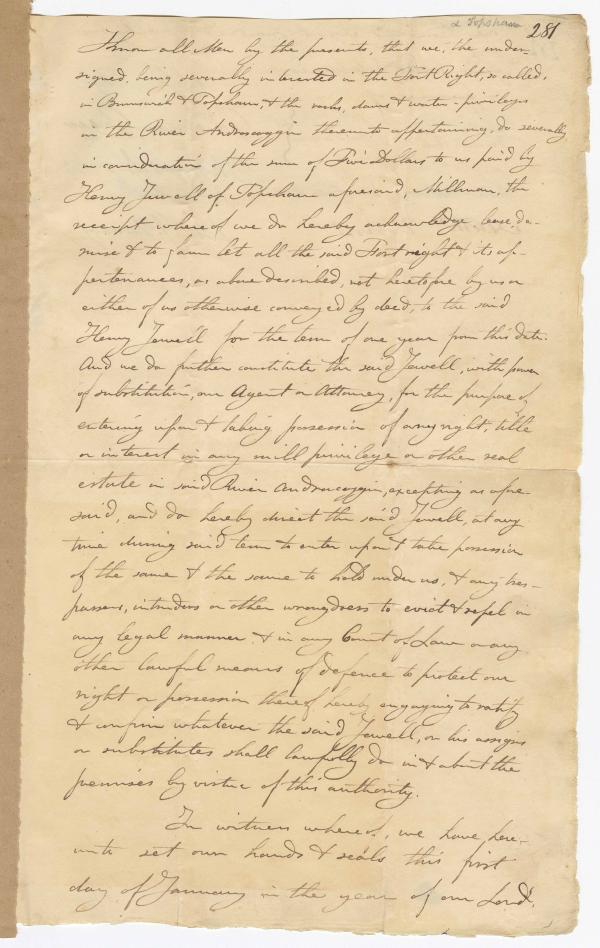 2 Topsham
281
Know all Men by the presents, that we, the under-
signed, being severally interested in the Fort Right, so called,
in Brunswick & Topsham, & the rocks, dams & water-privileges
in the River Androscoggin thereunto appertaining, do severally
in consideration of the sum of Five Dollars to us paid by
Henry Jewell of Topsham aforesaid, Millman, the
receipt whereof we do hereby acknowledge lease, de-
mise & to farm let all the said Fort right & its ap-
pertenances, as above described, not heretofore by us or
either of us otherwise conveyed by deed, to the said
Henry Jewell for the term of one year from this date.
And we do further constitute the said Jewell, with power
of substitution, our Agent or Attorney, for the purpose of
entering upon & taking possession of any right, title
or interest in any mill privilege or other real
estate in said River Androscoggin, excepting as afore-
said, and do hereby direct the said Jewell, at any
time during said term to enter upon & take possession
of the same & the same to hold under us, & any tres-
passers, intruders or other wrongdoers to evict & repel in
any legal manner & in any Court of Law or any
other lawful means of defence to protect our
right or possession thereof hereby engaging to ratify
& confirm whatever the said Jewell, or his assigns
or substitutes shall lawfully do in & about the
premises by virtue of this authority.
In witness whereof, we have here-
unto set our hands & seals this first
day of January in the year of our Lord,